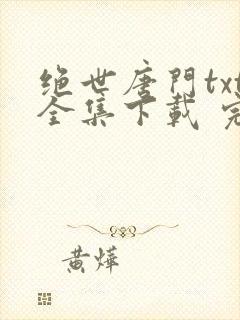 绝世唐門txt
全集下載 完
黄燁